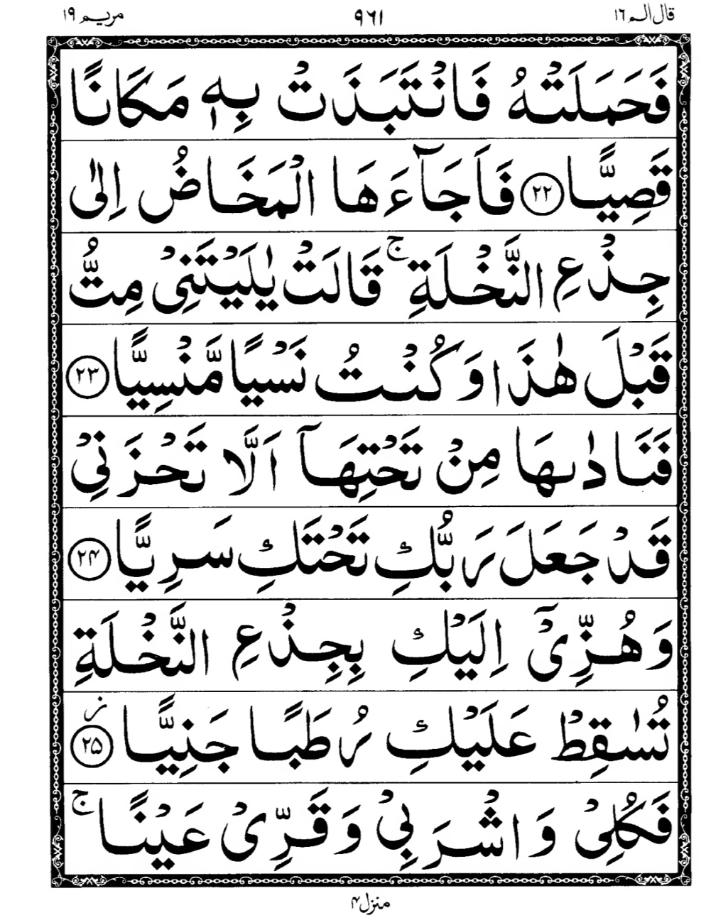 قال الم ١٦ ٩٦١ مريم ١٩
فَحَمَلَتْهُ فَانْتَبَذَتْ بِهٖ مَكَانًا
قَصِيًّا ﴿۲۲﴾ فَاَجَآءَهَا الْمَخَاضُ اِلٰى
جِذْعِ النَّخْلَةِ ۚ قَالَتْ يٰلَيْتَنِیْ مِتُّ
قَبْلَ هٰذَا وَكُنْتُ نَسْيًا مَّنْسِيًّا ﴿۲۳﴾
فَنَادٰىهَا مِنْ تَحْتِهَآ اَلَّا تَحْزَنِیْ
قَدْ جَعَلَ رَبُّكِ تَحْتَكِ سَرِيًّا ﴿۲۴﴾
وَهُزِّیْٓ اِلَيْكِ بِجِذْعِ النَّخْلَةِ
تُسٰقِطْ عَلَيْكِ رُطَبًا جَنِيًّا ﴿۲۵﴾ ز
فَكُلِیْ وَاشْرَبِیْ وَقَرِّیْ عَيْنًا ۚ
منزل ۴